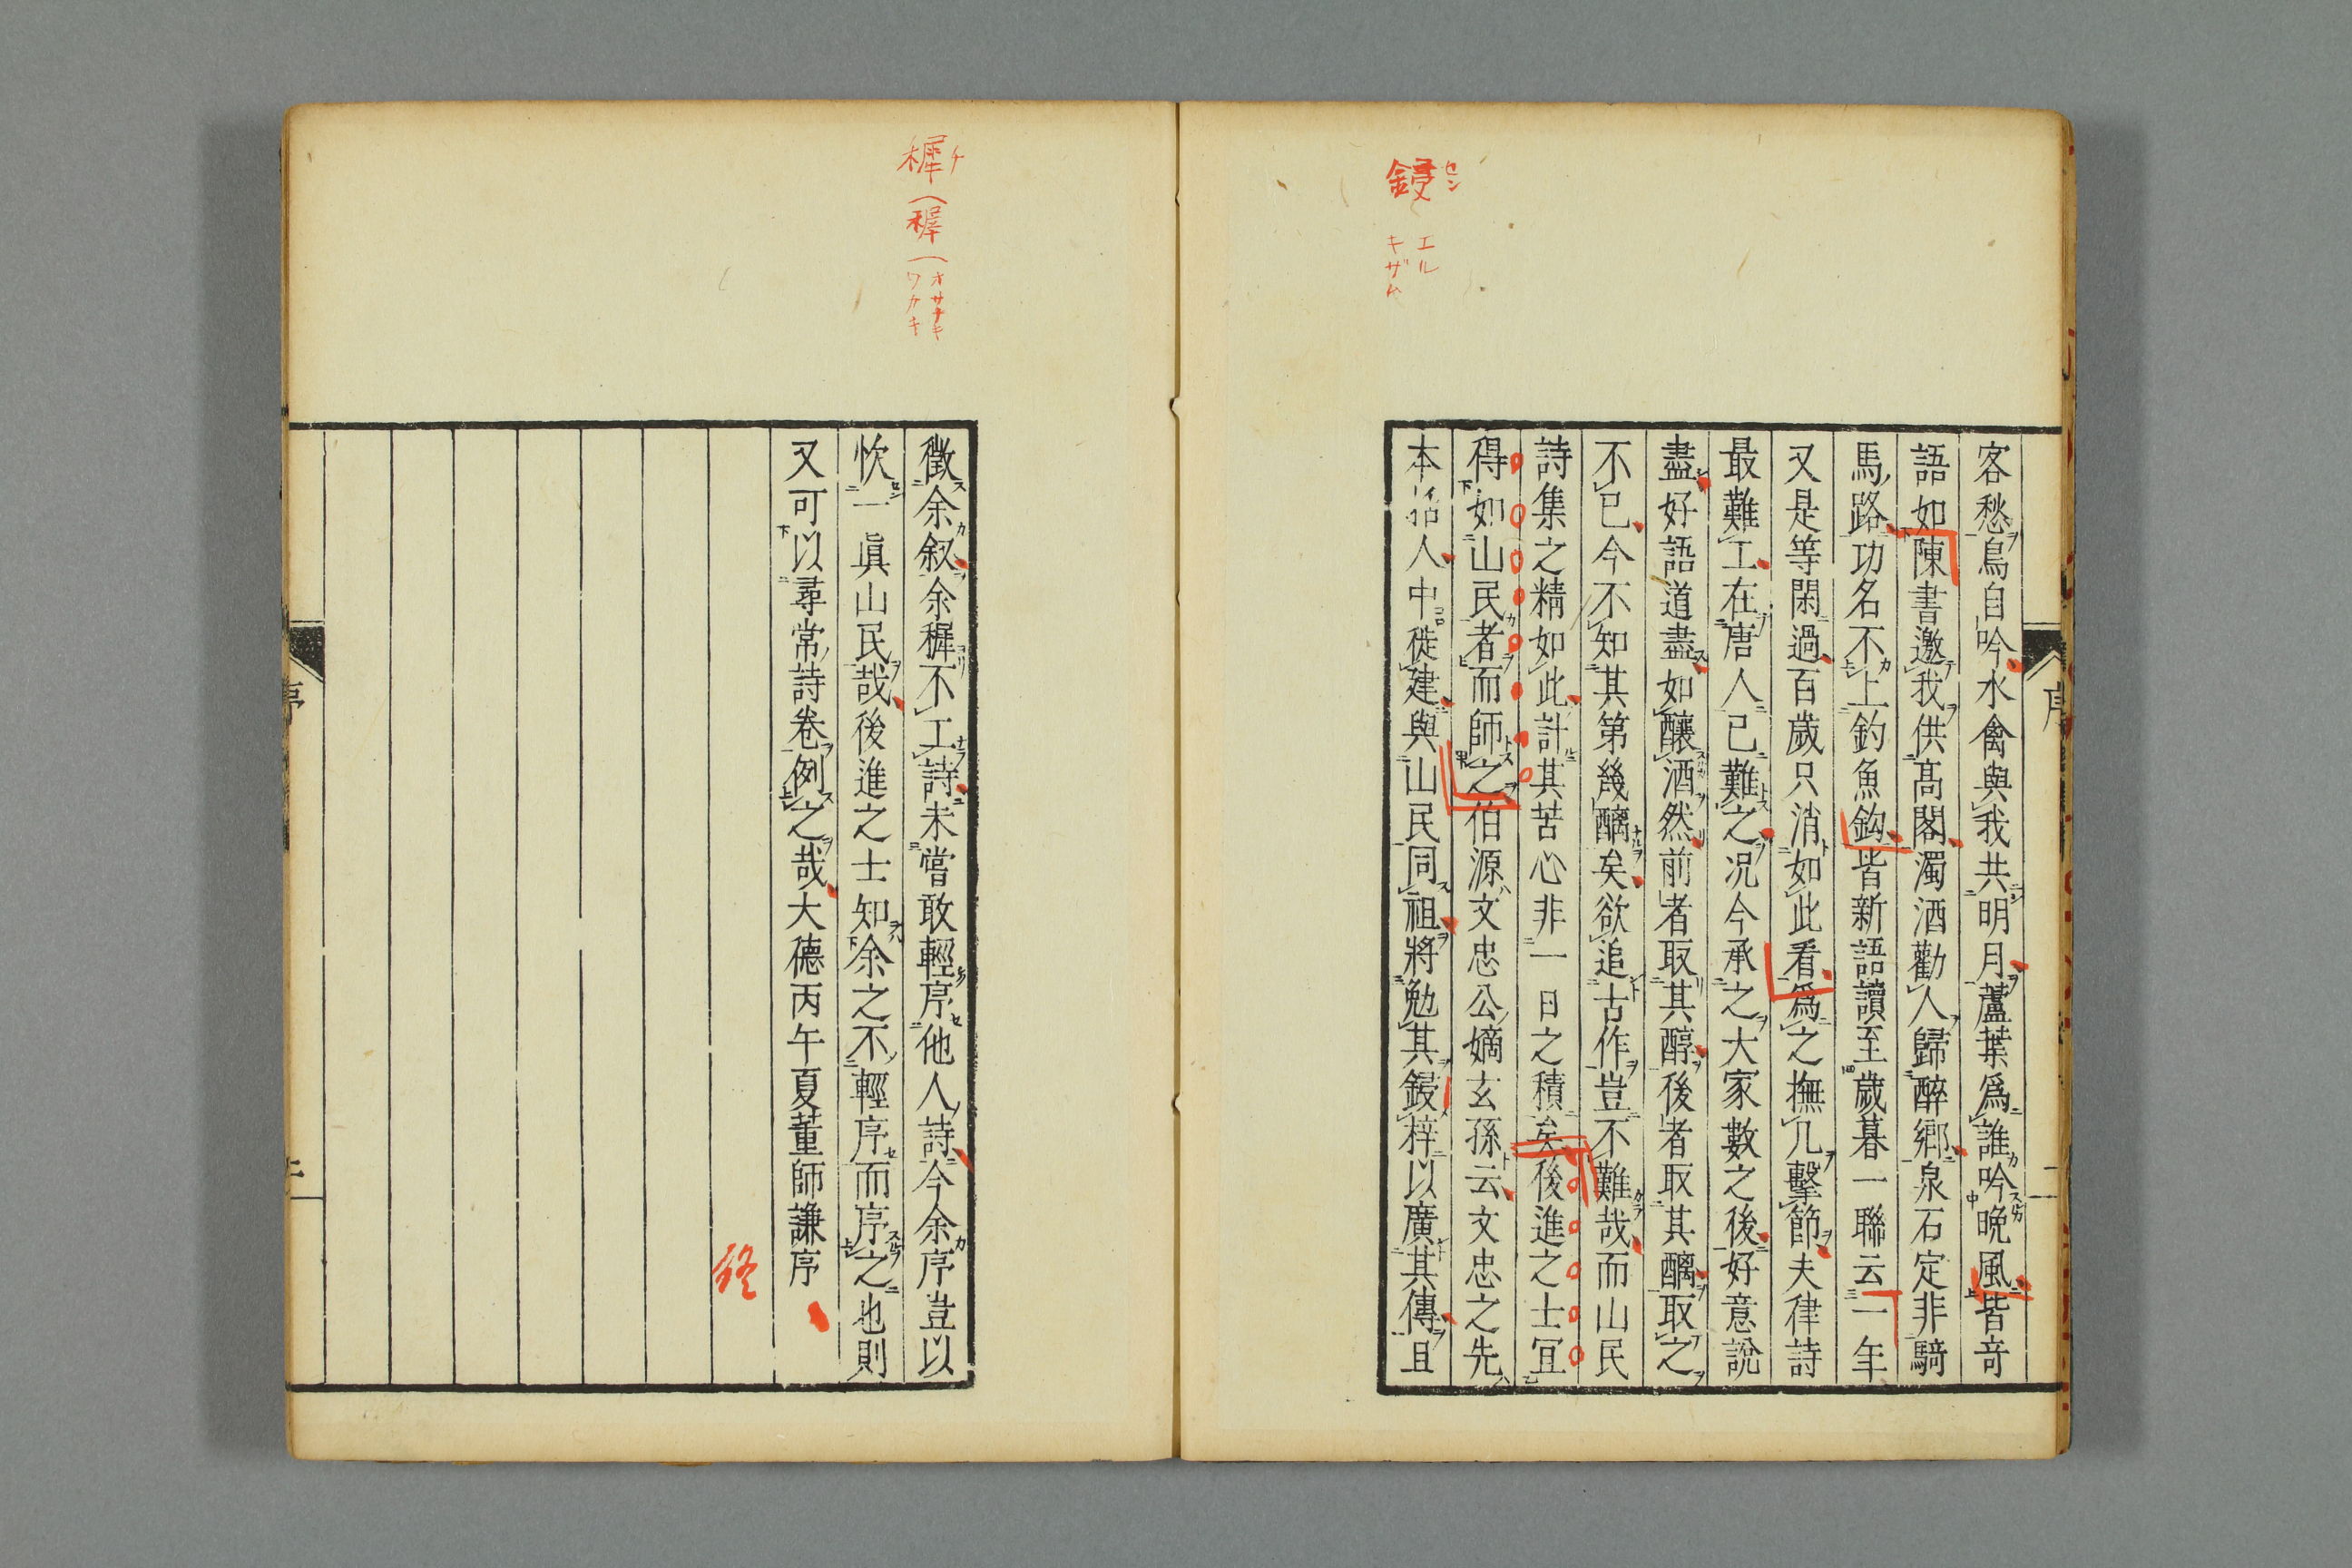 鋟 セン
エル
キザム
客愁鳥自吟水禽與我共明月蘆葉爲誰吟晚風皆竒
語如陳書邀我供髙閣濁酒勸人歸醉鄉泉石定非騎
馬路功名不上釣魚鈎皆新語讀至歲暮一聯云一年
又是等閑過百歲只消如此看爲之撫几擊節夫律詩
最難工在唐人已難之况今承之大家數之後好意說
盡好語道盡如釀酒然前者取其醇後者取其醨取之
不已今不知其第幾醨矣欲追古作豈不難哉而山民
詩集之精如此計其苦心非一日之積矣後進之士冝
得如山民者而師之伯源文忠公嫡玄孫云文忠之先
本人中徙建與山民同祖將勉其鋟梓以廣其傳且
序
二
樨 チ
(稺)
オサナキ
ワカキ
徵余叙余穉不工詩未嘗敢輕序他人詩今余序豈以
忺一眞山民哉後進之士知余之不輕序而序之也則
又可以尋常詩卷例之哉大德丙午夏董師謙序
終
序